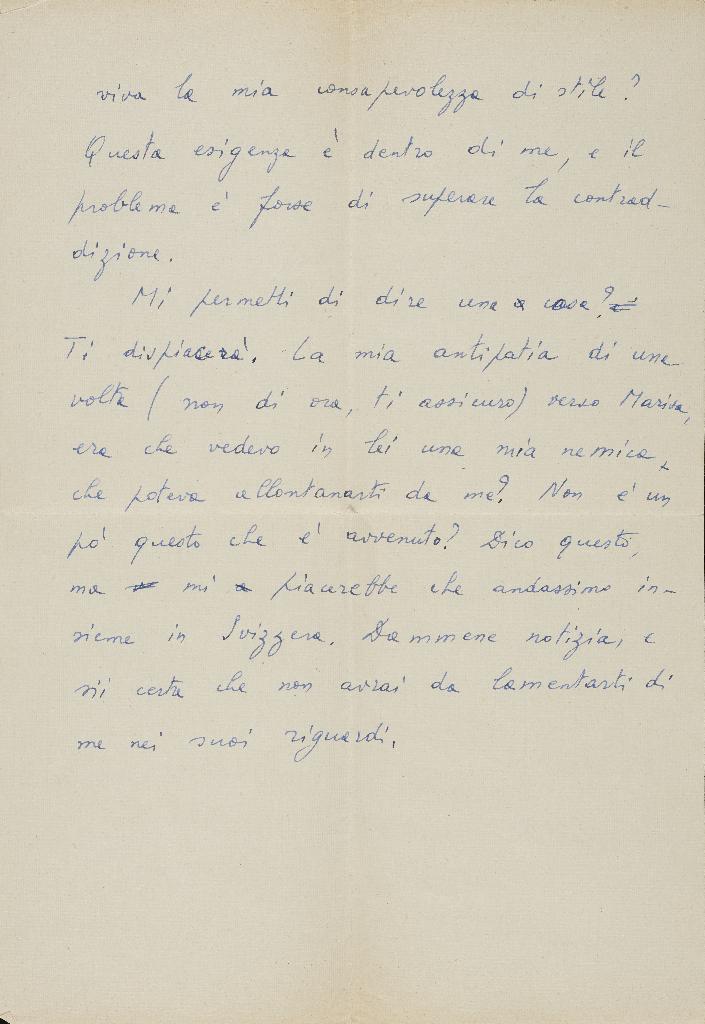 viva la mia consapevolezza di stile?
Questa esigenza è dentro di me, e il
problema è forse di superare la contrad-
dizione.
Mi permetti di dire una cosa?
Ti dispiacerà. La mia antipatia di una
volta (non di ora, ti assicuro) verso Marisa,
era che vedevo in lei una mia nemica,
che poteva allontanarti da me? Non è un
pò questo che è avvenuto? Dico questo,
ma mi piacerebbe che andassimo in-
sieme in Svizzera. Dammene notizia, e
sii certa che non avrai da lamentarti di
me nei suoi riguardi.